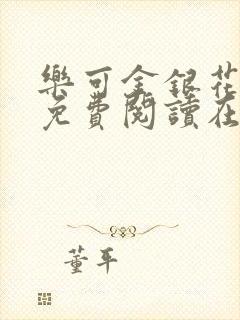 樂可金銀花
免費閱讀在
董平